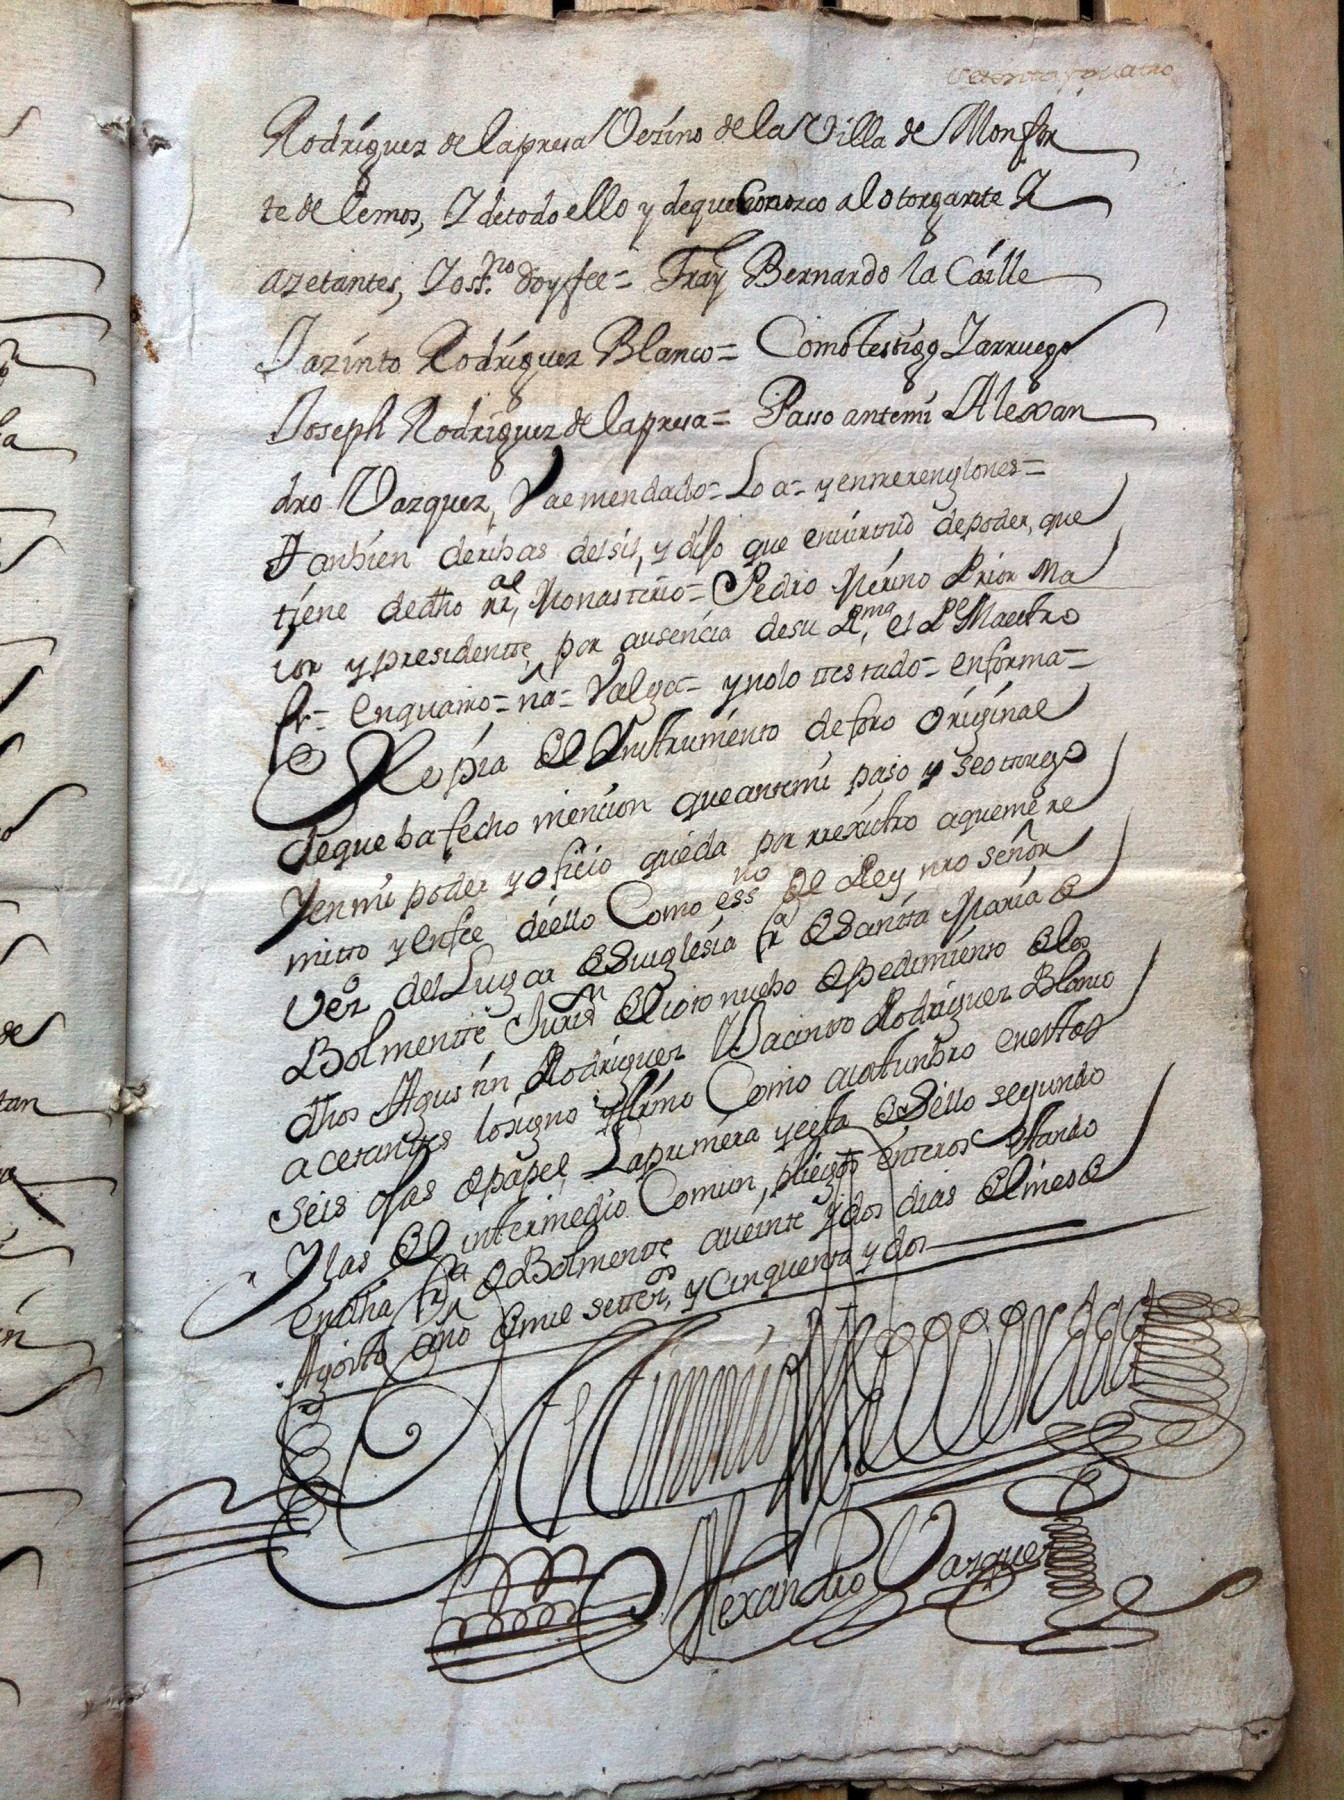 Veinte y quatro
Rodriguez de lapresa Vezino de la Villa de Monfor
te de lemos, Y detodo ello y deque Conozco al otorgante Y
azetantes, Yo ssno doy fee = Fray Bernardo la Calle
Jazinto Rodriguez Blanco = Como testigo Y arruego
Joseph Rodriguez de lapresa = Passo antemi Alexan
dro Vazquez, Vaemendado = Lo a = y entrerenglones =
tanbien deribas delsil, y dijo que envirtud depoder, que
tiene dedho rl, Monasterio = Pedro Merino Prior Ma
ior y presidente, por ausencia desu Rma, el Pe Maestro
fr = enquanto = na = Valga = y nolo testado = enforma =
Copia del Instrumento deforo original
deque ba fecho mencion queantemi paso y seotorgo
Yenmi poder y oficio queda por rexistro aqueme re
mito y enfee deello Como essno del Rey nro señor
vezº del Lugar de Suiglesia fra de Santa Maria de
Bolmente Jurisn de pedimiento de los
dhos Agustin Rodriguez Y Jacinto Rodriguez Blanco
acetantes losigno y firmo Como acostunbro enestas
seis ojas de papel, Laprimera yesta de Sello segundo
Ylas del intermedio Comun, pliegos enteros estando
endha fra de Bolmente aveinte y dos dias del mes de
Agosto año de mil settezos, y cinquenta y dos
Alexandro Vazquez